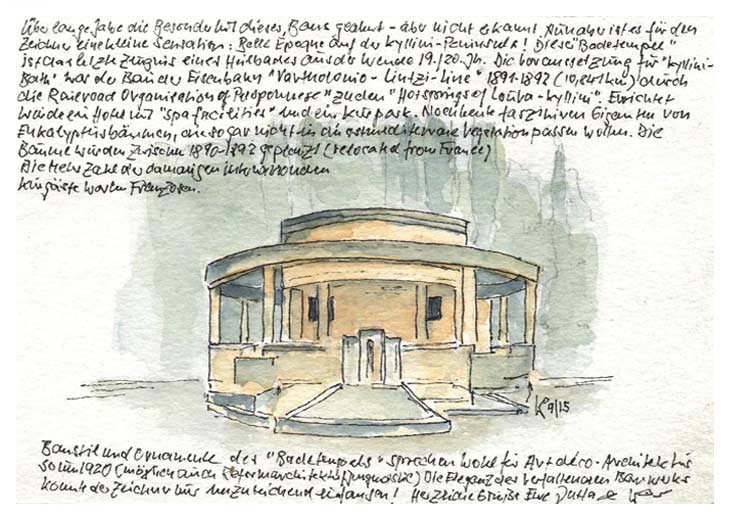 Über lange Jahre die Besonderheit dieses Baus geahnt - aber nicht erkannt! Nunaber ist es für den
Zeichner eine kleine Sensation: Belle Epoque auf der Kyllini-Peninsula! Dieser "Badetempel"
ist das letzte Zeugnis eines Heilbades aus der Wende 19./20. Jh. Die Voraussetzung für "Kyllini-
Bath" war der Bau der Eisenbahn "Vartholomio - Lintzi-line" 1891-1892 durch
die Railroad Organisation of Peloponnese" zu den "Hotsprings of Loutra-Kyllini". Errichtet
wurde ein Hotel mit "spafacilities" und ein Kurpark. Noch heute faszinieren Giganten von
Eukalyptusbäumen, die so gar nicht in die umliegende Vegetation passen wollen. Die
Bäume wurden zwischen 1890-1892 gepflanzt (relocated from France)
Die Mehrzahl der damaligen internationalen
Kurgäste waren Franzosen.
K 9/15
Baustil und Ornamente des "Badetempels" sprechen wohl für Art déco-Architektur
so um 1920 (möglich auch Reformarchitektur/Jugendstil) Die Eleganz des verfallenen Bauwerks
konnte der Zeichner nur unzureichend einfangen! Herzliche Grüße Eure Jutta &